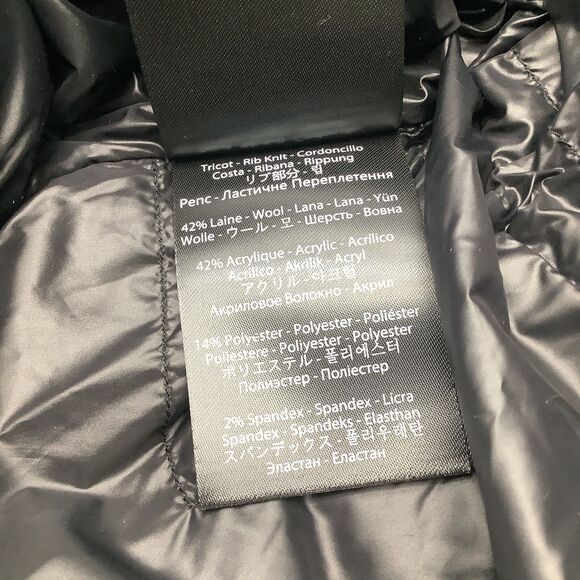 Tricot - Rib Knit - Cordoncillo
Costa - Ribana - Rippung
リブ部分 - 립
Репс - Ластичне Переплетення
42% Laine - Wool - Lana - Lana - Yün
Wolle - ウール - 모 - Шерсть - Вовна
42% Acrylique - Acrylic - Acrílico
Acrilico - Akrilik - Acryl
アクリル - 아크릴
Акриловое Волокно - Акрил
14% Polyester - Polyester - Poliéster
Poliestere - Polyester - Polyester
ポリエステル - 폴리에스터
Полиэстер - Поліестер
2% Spandex - Spandex - Licra
Spandex - Spandeks - Elasthan
スパンデックス - 폴리우레탄
Эластан - Еластан